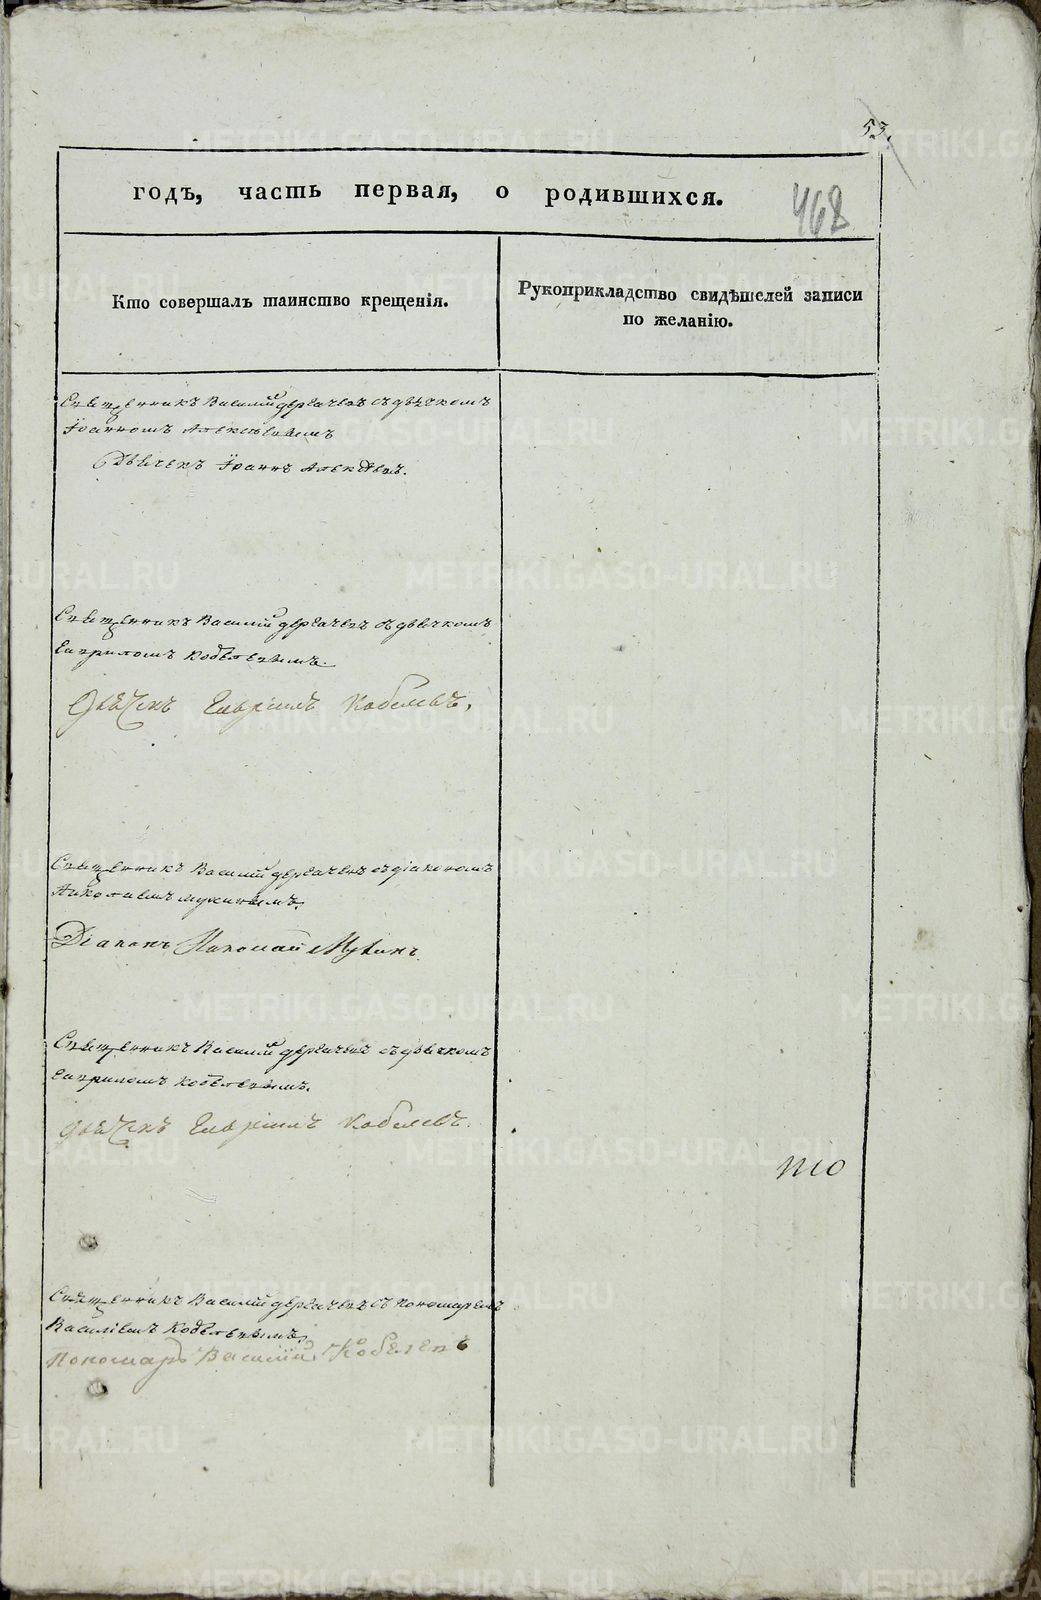 53.
годъ, часть первая, о родившихся.
468
Кто совершалъ таинство крещенія.
Рукоприкладство свидѣтелей записи
по желанію.
Священникъ Василій Дергачевъ съ дьячкомъ
Іоанномъ Алексѣевымъ
Дьячекъ Іоаннъ Алексѣевъ.
Священникъ Василій Дергачевъ съ дьячкомъ
Гавриломъ Кобелевымъ.
Дьячекъ Гавріилъ Кобелевъ.
Священникъ Василій Дергачевъ съ діакономъ
Николаемъ Мукинымъ.
Діаконъ Николай Мукинъ
Священникъ Василій Дергачевъ съ дьячкомъ
Гавриломъ Кобелевымъ.
дьячекъ Гавріилъ Кобелевъ.
Священникъ Василій Дергачевъ съ пономаремъ
Василіемъ Кобелевымъ.
Пономарь Василій Кобелевъ
METRIKI.GASO-URAL.RU